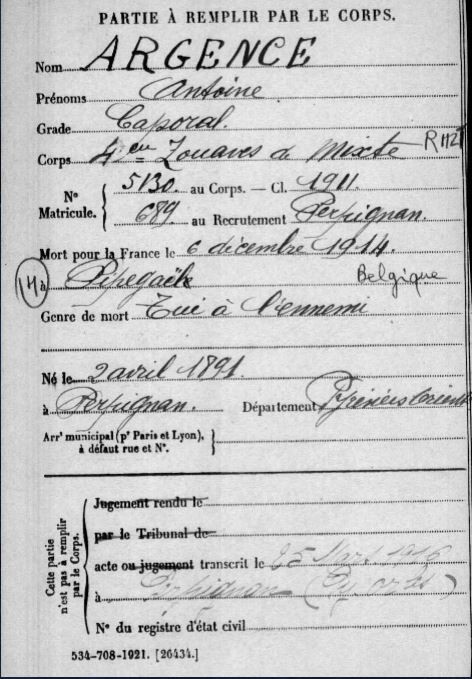 PARTIE À REMPLIR PAR LE CORPS.
Nom ARGENCE
Prénoms Antoine
Grade Caporal.
Corps 4e Zouaves de Mixte R112
N° Matricule. 5130. au Corps. — Cl. 1911.
689 au Recrutement Perpignan.
Mort pour la France le 6 décembre 1914.
à Belgique
Genre de mort Tué à l'ennemi
Né le 2 avril 1891.
à Perpignan. Département Pyrénées Orient
Arrt municipal (pr Paris et Lyon), à défaut rue et N°.
Cette partie n'est pas à remplir par le Corps.
Jugement rendu le
par le Tribunal de
acte ou jugement transcrit le 25 Mars 1916
à Perpignan
N° du registre d'état civil
534-708-1921. [26434.]